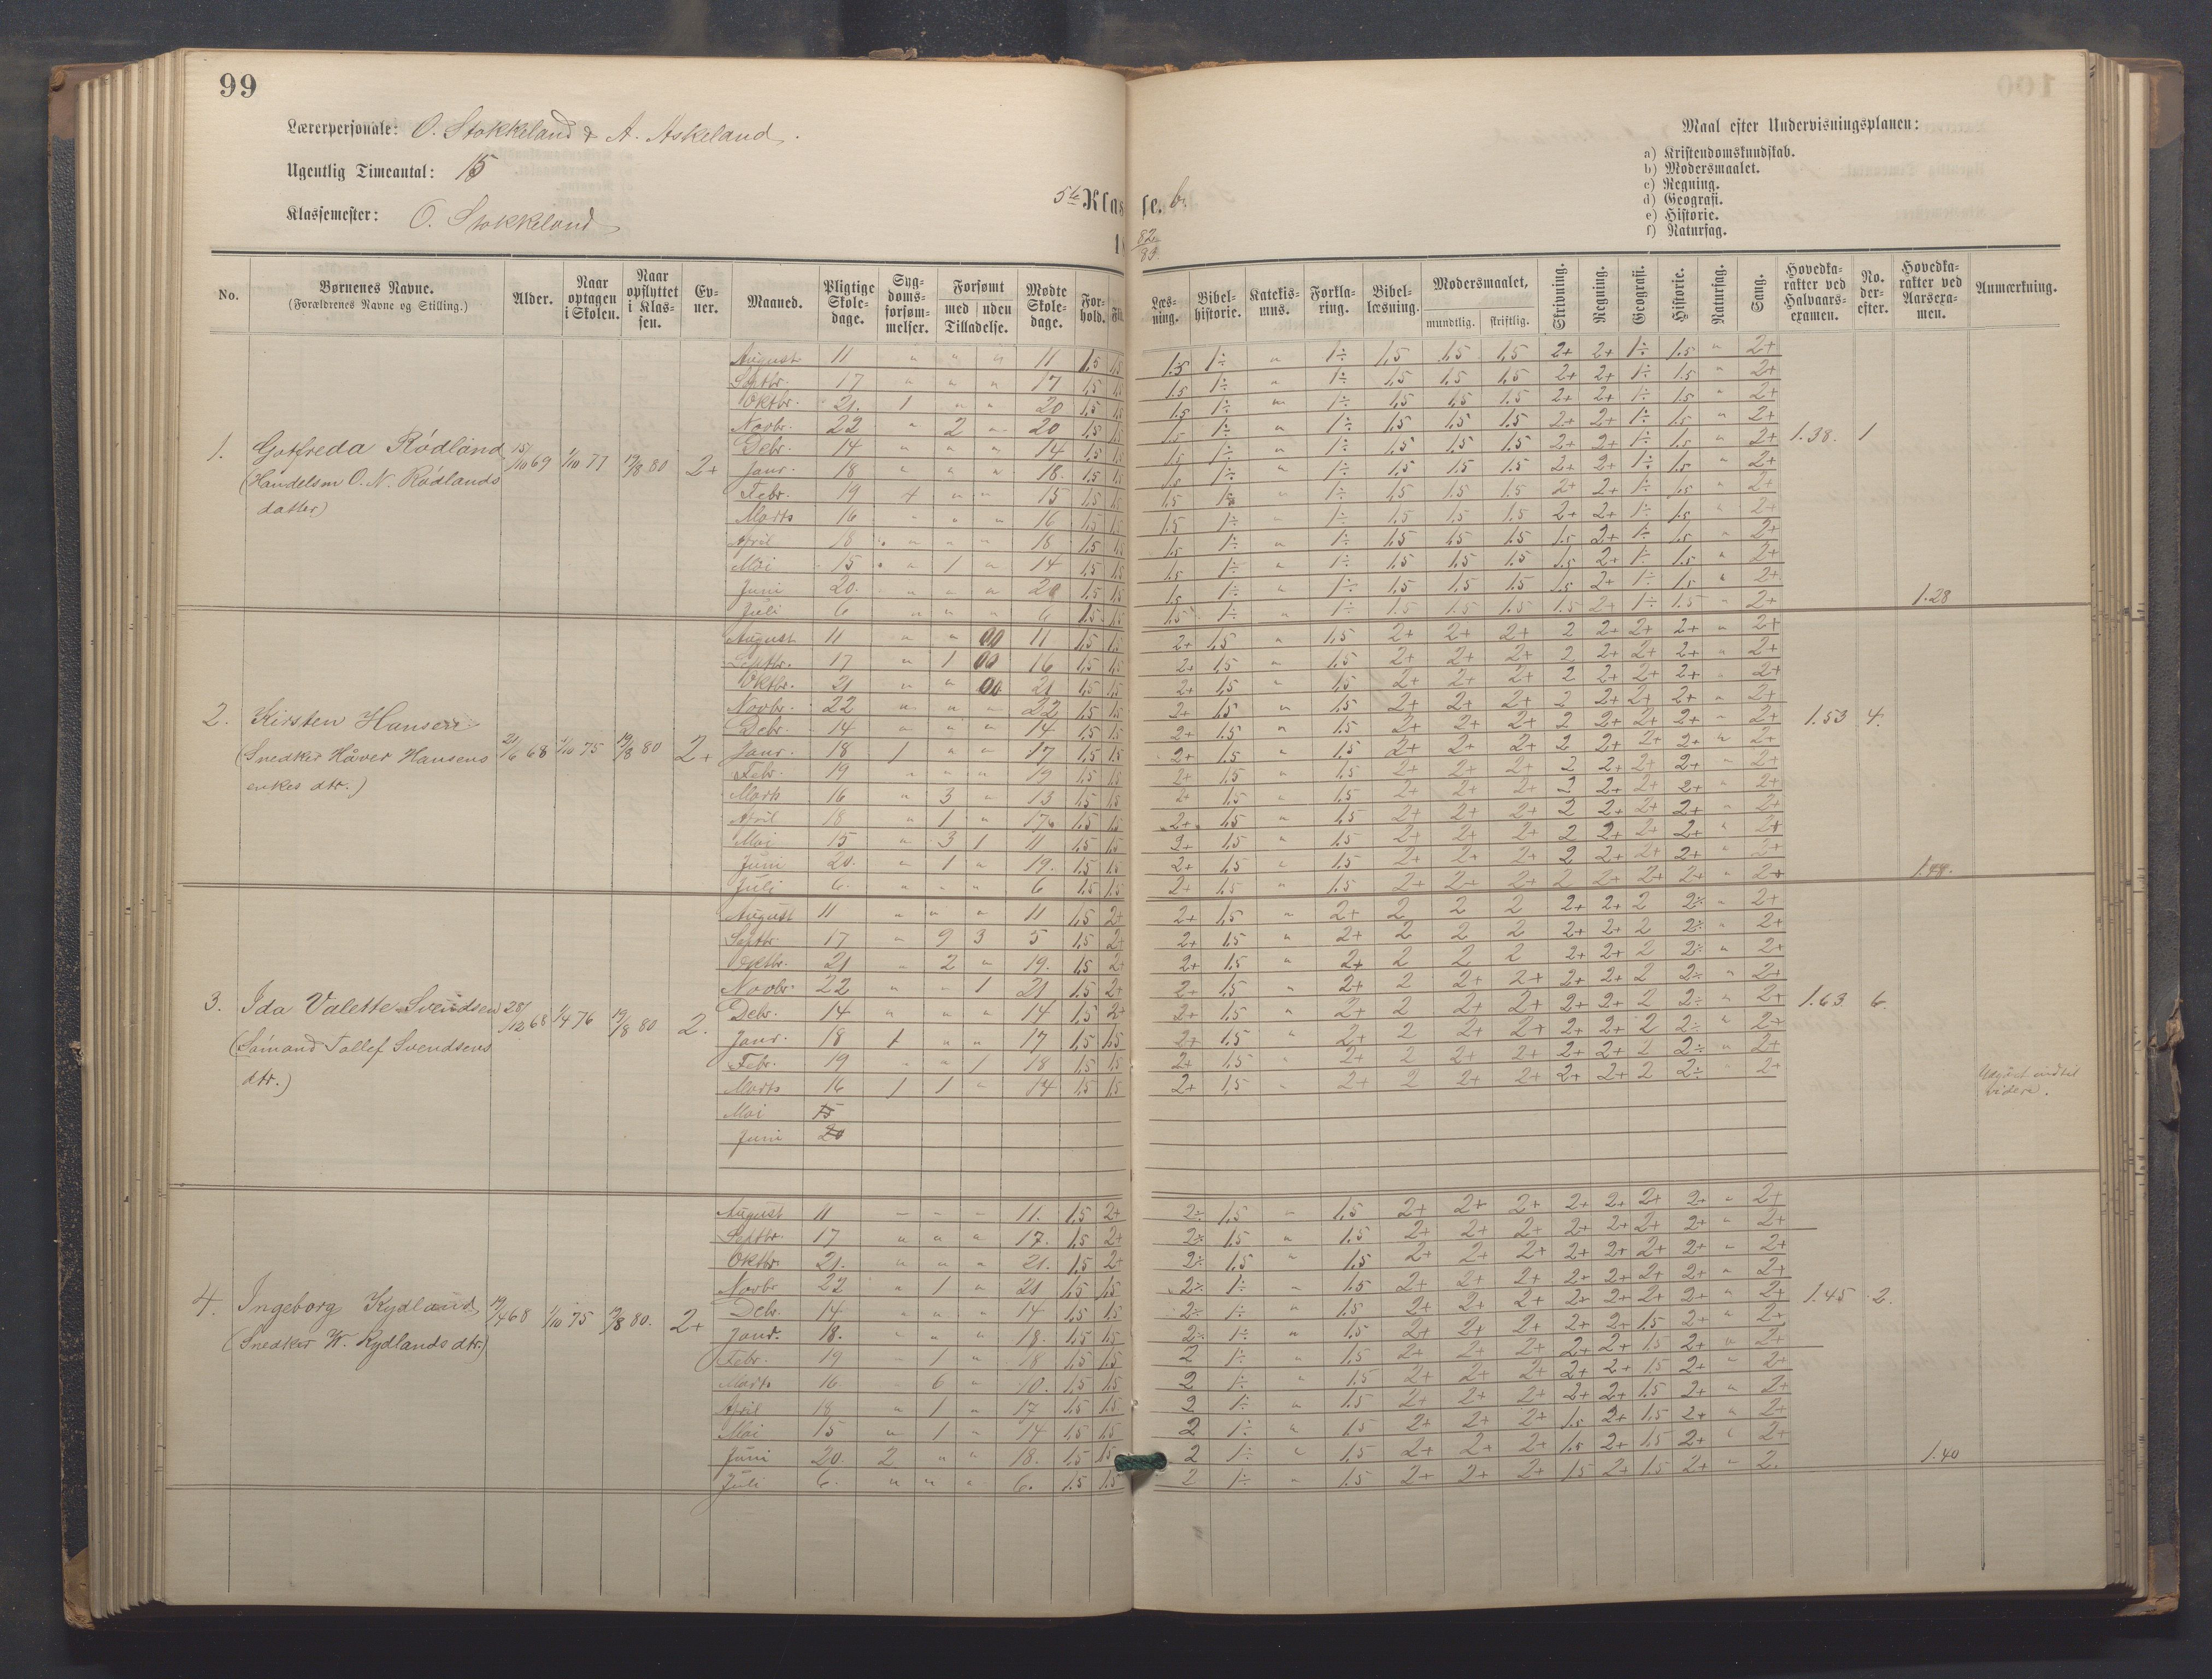 99
Lærerpersonale: O. Stokkeland & A. Askeland.
Ugentlig Timeantal: 15
Klassemester: O. Stokkeland
5te Klasse. b.
18 82/83
Maal efter Undervisningsplanen:
a) Kristendomskundskab.
b) Modersmaalet.
c) Regning.
d) Geografi.
e) Historie.
f) Naturfag.
No. Børnenes Navne. (Forældrenes Navne og Stilling.) Alder. Naar optagen i Skolen. Naar opflyttet i Klassen. Evner. Maaned. Pligtige Skoledage. Sygdomsforsømmelser. Forsømt med | uden Tilladelse. Mødte Skoledage. Forhold. Læsning. Bibelhistorie. Katekismus. Forklaring. Bibellæsning. Modersmaalet, mundtlig. skriftlig. Skrivning. Regning. Geografi. Historie. Naturfag. Sang. Hovedkarakter ved Halvaarsexamen. No. derefter. Hovedkarakter ved Aarsexamen. Anmærkning.
1. Gotfreda Rødland 15/10 69 1/10 77 19/8 80 2+
(Handelsm O. N. Rødlands
datter)
August 11 " " " 11 1,5 1,5 1.5 1÷ " 1÷ 1,5 1,5 1,5 2+ 2+ 1÷ 1.5 " 2+
Septbr. 17 " " " 17 1,5 1,5 1.5 1÷ " 1÷ 1,5 1,5 1,5 2+ 2+ 1÷ 1.5 " 2+
Oktbr. 21. 1 " " 20 1,5 1,5 1.5 1÷ " 1÷ 1,5 1,5 1.5 2+ 2+ 1÷ 1.5 " 2+
Novbr. 22 " 2 " 20 1,5 1,5 1.5 1÷ " 1÷ 1,5 1,5 1.5 2+ 2+ 1÷ 1.5 " 2+
Debr. 14 " " " 14 1,5 1,5 1.5 1÷ " 1÷ 1,5 1,5 1.5 2+ 2+ 1÷ 1.5 " 2+ 1.38. 1
Janr. 18 " " " 18. 1,5 1,5 1.5 1÷ " 1÷ 1,5 1.5 1.5 2+ 2+ 1÷ 1.5 " 2+
Febr. 19 4 " " 15 1,5 1,5 1.5 " 1÷ 1,5 1.5 1.5 2+ 2+ 1÷ 1.5 " 2+
Marts 16 " " " 16 1,5 1,5 1.5 1÷ " 1÷ 1,5 1,5 1.5 2+ 2+ 1÷ 1.5 " 2+
April 18 " " " 18 1,5 1,5 1.5 1÷ " 1÷ 1,5 1.5 1.5 1.5 2+ 1÷ 1.5 " 2+
Mai 15 " 1 " 14 1,5 1,5 1.5 1÷ " 1÷ 1,5 1.5 1.5 1.5 2+ 1÷ 1.5 " 2+
Juni 20. " " " 20 1,5 1,5 1.5 1÷ " 1÷ 1,5 1.5 1.5 1.5 2+ 1÷ 1.5 " 2+ 1.28
Juli 6 " " " 6 1.5 1,5 1.5 1÷ " 1÷ 1.5 1.5 1.5 1.5 2+ 1÷ 1.5 " 2+
2. Kirsten Hansen 21/6 68 1/10 75 19/8 80 2+
(Snedker Håver Hansens
enkes dtr.)
August 11 " " 00 11 1,5 1,5 2+ 1,5 " 1,5 2+ 2+ 2+ 2 2+ 2+ 2+ " 2+
Septbr. 17 " 1 00 16 1,5 1,5 2+ 1,5 " 1,5 2+ 2+ 2+ 2 2+ 2+ 2+ " 2+
Oktbr. 21 " " 00 21 1,5 1,5 2+ 1,5 " 1,5 2+ 2+ 2+ 2 2+ 2+ 2+ " 2+
Novbr. 22 " " " 22 1,5 1,5 2+ 1,5 " 1,5 2+ 2+ 2+ 2 2+ 2+ 2+ " 2+
Debr. 14 " " " 14 1,5 1,5 2+ 1,5 " 1.5 2+ 2+ 2+ 2 2+ 2+ 2+ " 2+ 1.53 4.
Janr. 18 1 " " 17 1,5 1,5 2+ 1,5 " 1,5 2+ 2+ 2+ 2 2+ 2+ 2+ " 2+
Febr. 19 " " " 19 1,5 1,5 2+ 1,5 " 1,5 2+ 2+ 2+ 2 2+ 2+ 2+ " 2+
Marts 16 " 3 " 13 1,5 1,5 2+ 1,5 " 1,5 2+ 2+ 2+ 2 2+ 2+ 2+ " 2+
April 18 " 1 " 17 1,5 1,5 2+ 1,5 " 1,5 2+ 2+ 2+ 2 2+ 2+ 2+ " 2+
Mai 15 " 3 1 11 1,5 1,5 2+ 1,5 " 1.5 2+ 2+ 2+ 2 2+ 2+ 2+ " 2+
Juni 20. " 1 " 19. 1,5 1,5 2+ 1,5 " 1.5 2+ 2+ 2+ 2 2+ 2+ 2+ " 2+
Juli 6. " " " 6 1.5 1.5 2+ 1,5 " 1.5 2+ 2+ 2+ 2 2+ 2+ 2+ " 2+
3. Ida Valette Svendsen 28/12 68 1/4 76 19/8 80 2.
(Sømand Tallef Svendsens
dtr.)
August 11 " " " 11 1,5 2+ 2+ 1,5 " 2+ 2 2 2 2+ 2+ 2 2÷ " 2+
Septbr. 17 " 9 3 5 1,5 2+ 2+ 1.5 " 2+ 2 2 2 2+ 2+ 2 2÷ " 2+
Oktbr. 21 " 2 " 19. 1,5 2+ 2+ 1.5 " 2+ 2 2 2 2+ 2+ 2 2÷ " 2+
Novbr. 22 " " 1 21 1.5 2+ 2+ 1,5 " 2+ 2 2+ 2+ 2+ 2+ 2 2÷ " 2+
Debr. 14 " " " 14 1,5 2+ 2+ 1,5 " 2+ 2 2+ 2+ 2+ 2+ 2 2÷ " 2+ 1.63 6.
Janr. 18 1 " " 17 1,5 1,5 2+ 1.5 " 2+ 2 2+ 2+ 2+ 2+ 2 2÷ " 2+
Febr. 19 " " 1 18 1,5 1,5 2+ 1,5 " 2+ 2 2+ 2+ 2+ 2+ 2 2÷ " 2+
Marts 16 1 1 " 14 1,5 1,5 2+ 1,5 " 2+ 2 2+ 2+ 2+ 2+ 2 2÷ " 2+ indtil
videre.
Mai 15
Juni 20
4. Ingeborg Kydland 19/4 68 1/10 75 19/8 80. 2+
(Snedker W. Kydlands dtr.)
August 11 " " " 11. 1,5 2+ 2÷ 1,5 " 1,5 2+ 2+ 2+ 2+ 2+ 2+ 2+ " 2+
Septbr. 17 " " " 17. 1,5 2+ 2÷ 1,5 " 1.5 2+ 2+ 2+ 2+ 2+ 2+ 2+ " 2+
Oktbr. 21. " " " 21. 1,5 2+ 2÷ 1,5 " 1,5 2+ 2+ 2+ 2+ 2+ 2+ 2+ " 2+
Novbr 22 " 1 " 21 1,5 1,5 2÷ 1÷ " 1,5 2+ 2+ 2+ 2+ 2+ 2+ 2+ " 2+
Debr. 14 " " " 14 1,5 1,5 2÷ 1÷ " 1.5 2+ 2+ 2+ 2+ 2+ 2+ 2+ " 2+ 1.45 2.
Janr. 18. " " " 18. 1,5 1,5 2÷ 1÷ " 1.5 2+ 2+ 2+ 2+ 2+ 1.5 2+ " 2+
Febr. 19 " 1 " 18 1,5 1,5 2 1÷ " 1.5 2+ 2+ 2+ 2+ 2+ 1.5 2+ " 2+
Marts 16 " 6 " 10. 1,5 1,5 2 1÷ " 1.5 2+ 2+ 2+ 2+ 2+ 1.5 2+ " 2+
April 18 " 1 " 17 1.5 1.5 2 1÷ " 1.5 2+ 2+ 2+ 2+ 2+ 1.5 2+ " 2+
Mai 15 " 1 " 14 1,5 1,5 2 1÷ " 1.5 2+ 2+ 2+ 1.5 2+ 1.5 2+ " 2+
Juni 20. 2 " " 18. 1.5 1.5 2 1÷ " 1.5 2+ 2+ 2+ 1.5 2+ 1.5 2+ " 2+ 1.40
Juli 6. " " " 6. 1.5 1.5 2 1÷ " 1.5 2+ 2+ 2+ 1.5 2+ 1.5 2+ " 2.